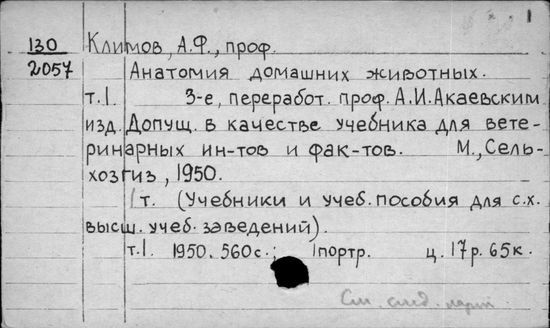 1
130 Климов, А.Ф., проф.
2057 Анатомия домашних животных.
т.I. 3-е, переработ. проф. А.И.Акаевским
изд. Допущ. в качестве учебника для вете-
ринарных ин-тов и фак-тов. М., Сель-
хозгиз, 1950.
т. (Учебники и учеб. пособия для с.х.
высш. учеб. заведений).
т.I. 1950. 560с.; 1портр. ц. 17р. 65к.
См. след. карт.